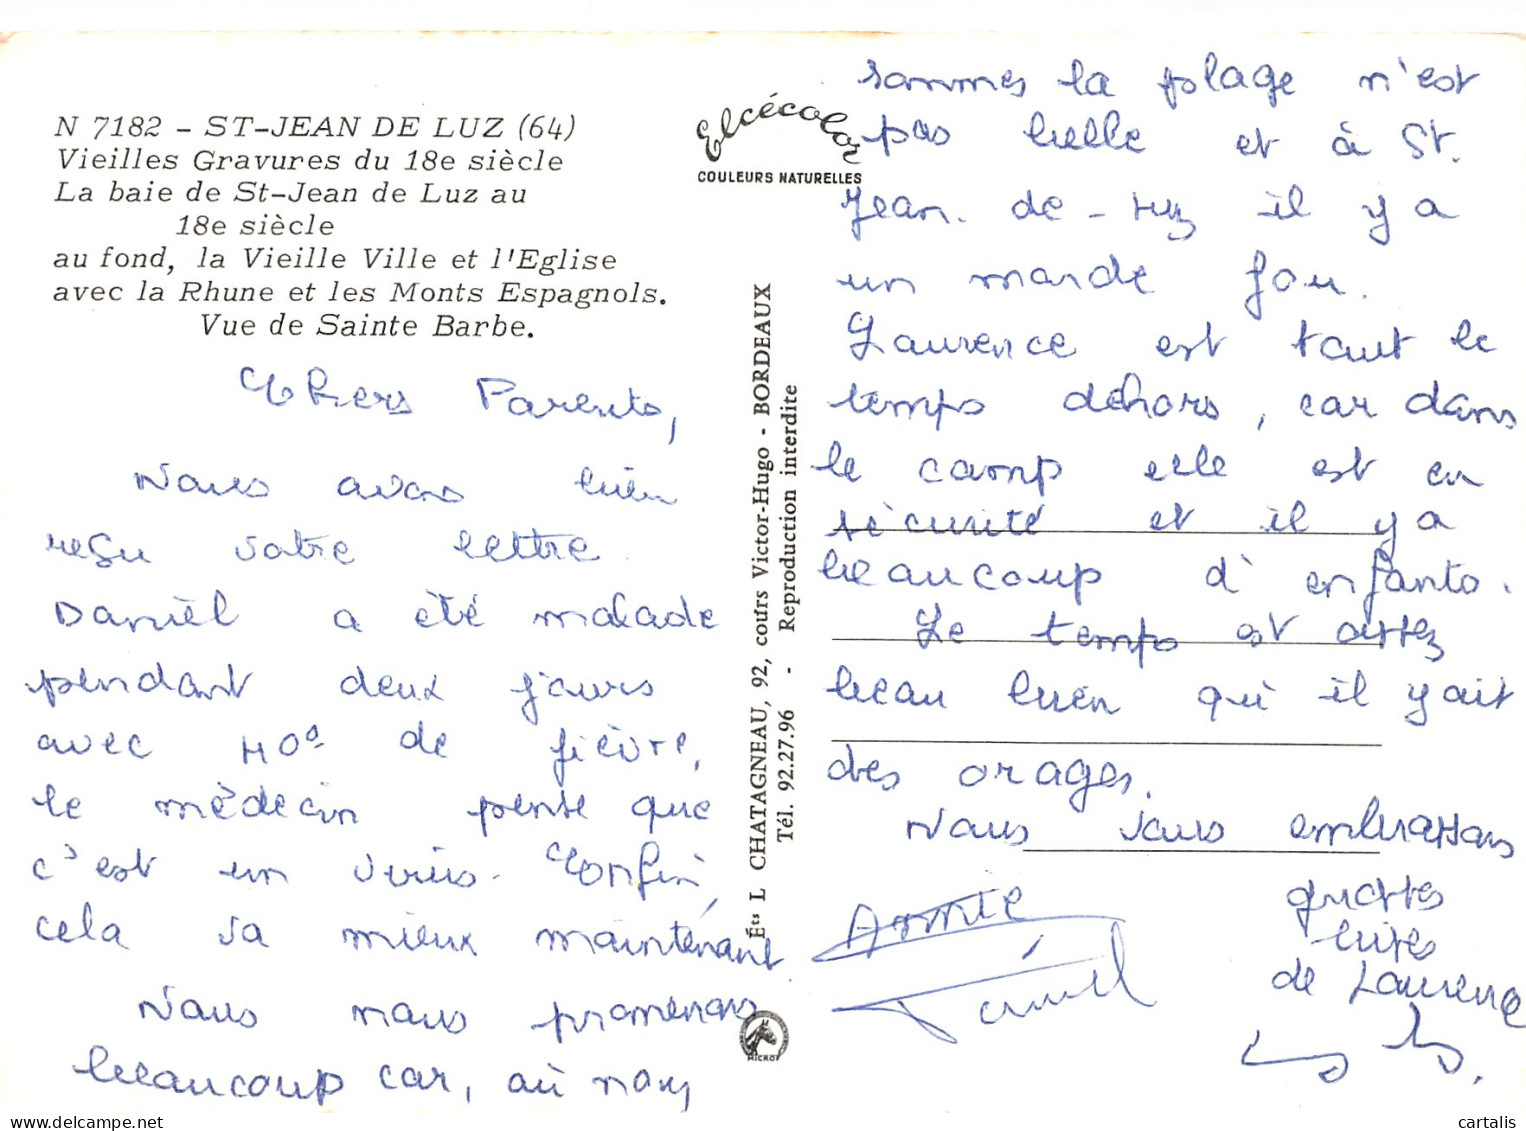 N 7182 - ST-JEAN DE LUZ (64)
Vieilles Gravures du 18e siècle
La baie de St-Jean de Luz au
18e siècle
au fond, la Vieille Ville et l'Eglise
avec la Rhune et les Monts Espagnols.
Vue de Sainte Barbe.
Chers Parents,
Nous avons bien
reçu votre lettre.
Daniel a été malade
pendant deux jours
avec 40° de fièvre,
le médecin pense que
c'est un virus. Enfin,
cela va mieux maintenant
Nous nous promenons
beaucoup car, où nous
Elcécolor
COULEURS NATURELLES
Éts L CHATAGNEAU, 92, cours Victor-Hugo - BORDEAUX
Tél. 92.27.96 - Reproduction interdite
MICRO
sommes la plage n'est
pas belle et à St.
Jean-de-Luz il y a
un monde fou.
Laurence est tout le
temps déhors, car dans
le camp elle est en
sécurité et il y a
beaucoup d'enfants.
Le temps est assez
beau bien qui il y ait
des orages.
Nous vous embrassons
Annie
Daniel
grosses
bises
de Laurence
cartalis.com